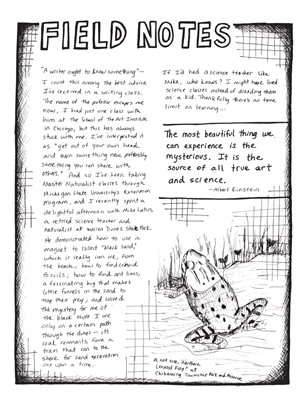 FIELD NOTES
"A writer ought to know something"—
I count this among the best advice
I've received in a writing class.
The name of the professor escapes me
now, I had just one class with
him at The School of the Art Institute
in Chicago, but this has always
stuck with me. I've interpreted it
as "get out of your own head,
and learn something new, preferably
something you can share with
others." And so I've been taking
Master Naturalist classes through
Michigan State University's Extension
program, and I recently spent a
delightful afternoon with Mike
a retired science teacher and
naturalist at Warren Dunes State Park.
He demonstrated how to use a
magnet to collect "black sand,"
which is really iron ore, from
the beach; how to find crinoid
fossils; how to find ant lions,
a fascinating bug that makes
little funnels in the sand to
trap their prey; and solved
the mystery for me of
the black stuff I see
only on a certain path
through the dunes – it's
coal remnants from a
train that ran to the
shore for sand excavation
once upon a time.
If I'd had a science teacher like
Mike, who knows? I might have loved
science classes instead of dreading them
as a kid. Thankfully there's no time
limit on learning...
The most beautiful thing we
can experience is the
mysterious. It is the
source of all true art
and science.
—Albert Einstein
A not rare, Northern
Leopard Frog at
Chikaming Township Park and Preserve